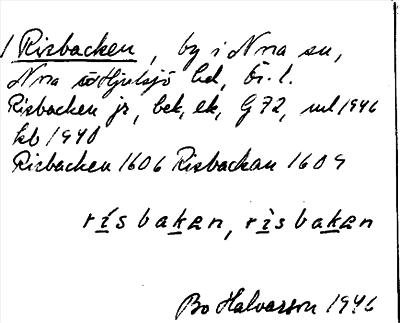 / Risbacken, by i N^ra sn,
N^ra Hjulsjö hd, Ör. l.
Risbacken jr, bek, ek, G 72, uul 1946
kb 1940
Risbacken 1606 Risbackan 1609
rísbakɛn, rìsbakɛn
Bo Halvarson 1946